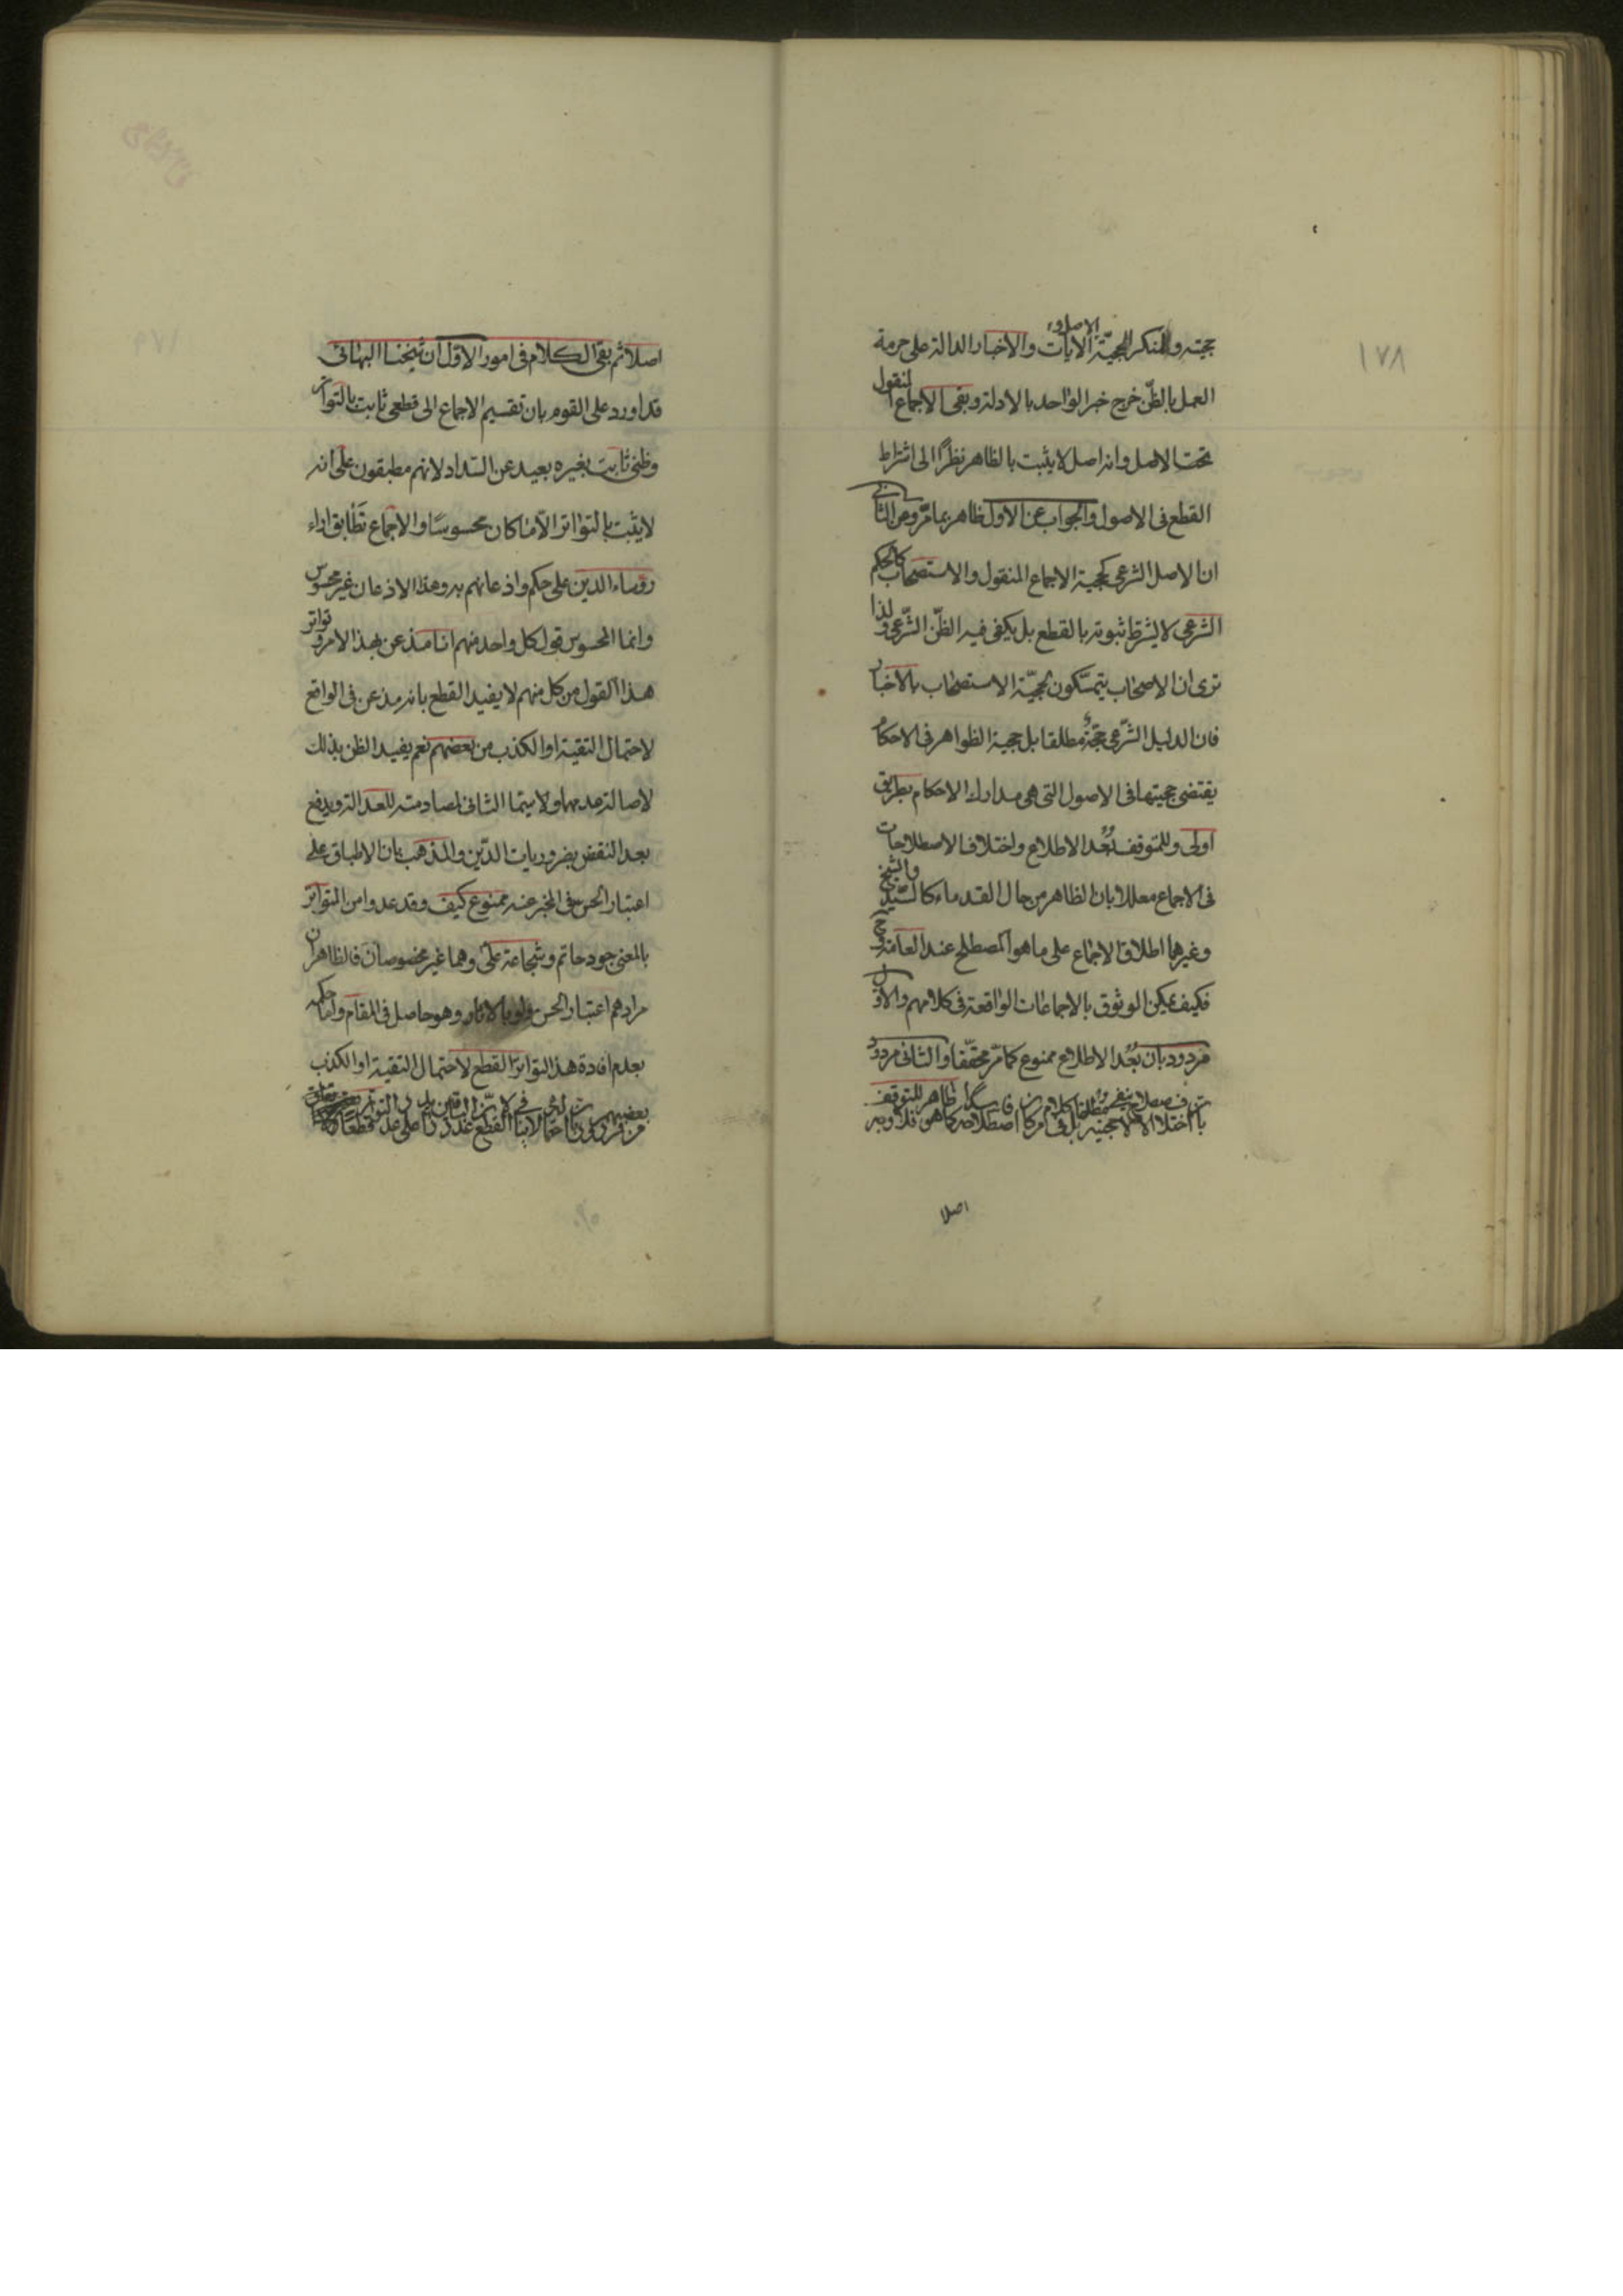 ١٧٨
حجيته وللمنكر للحجيّة الاصل و الآيات والاخبار الدالة على حرمة
العمل بالظنّ خرج خبر الواحد بالادلة وبقى الاجماع المنقول
تحت الاصل وانه اصل لا يثبت بالظاهر نظرًا الى اشتراط
القطع فى الاصول والجواب عن الاول ظاهر بما مرّ وعن الثانى
ان الاصل الشرعى كحجية الاجماع المنقول والاستصحاب كالحكم
الشرعى لا يشترط ثبوته بالقطع بل يكفى فيه الظنّ الشّرعى ولذا
ترى ان الاصحاب يتمسّكون لحجيّة الاستصحاب بالاخبار
فان الدليل الشّرعى حجّة مطلقا بل حجية الظواهر فى الاحكام
يقتضى حجيتها فى الاصول التى هى مدارك الاحكام بطريق
اولى وللمتوقف بُعْد الاطلاع واختلاف الاصطلاحات
فى الاجماع معللا بان الظاهر من حال القدماء كالسّيّد والشيخ
وغيرهما اطلاق الاجماع على ما هو المصطلح عند العامّة وح
فكيف يمكن الوثوق بالاجماعات الواقعة فى كلامهم والاوّل
مردود بان بُعْد الاطلاع ممنوع كما مرّ محقّقا والثانى مردود
اصلا
اصلا ثم بقى الكلام فى امور الاوّل ان شيخنا البهائى
قد اورد على القوم بان تقسيم الاجماع الى قطعى ثابت بالتواتر
وظنى ثابت بغيره بعيد عن السّداد لانهم مطبقون على انه
لا يثبت بالتواتر الّا ما كان محسوسًا والاجماع تَطابق اراء
رؤساء الدين على حكم واذعانهم به وهذا الاذعان غير محسوس
وانما المحسوس قول كل واحد منهم انا مذعن بهذا الامر وتواتر
هذا القول من كل منهم لا يفيد القطع بانه مذعن فى الواقع
لاحتمال التقية او الكذب من بعضهم نعم يفيد الظن بذلك
لاصالة عدمهما ولا سيّما الثانى لمصادمته للعدالة ويدفع
بعد النقض بضروريات الدّين والمذهب بان الاطباق على
اعتبار الحس فى المخبر عنه ممنوع كيف وقد عدوا من المتواتر
بالمعنى جود حاتم وشجاعة علىّ وهما غير مخصوصان فالظاهر ان
مرادهم اعتبار الحس ولو بالاثار وهو حاصل فى المقام واما حكمه
بعدم افادة هذا التواتر القطع لاحتمال التقية او الكذب